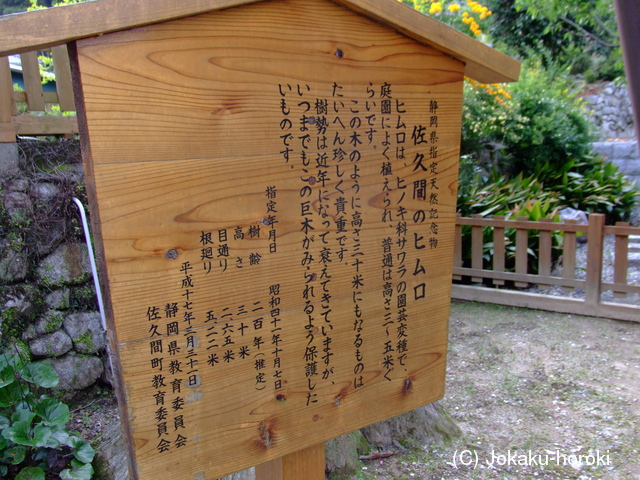 静岡県指定天然記念物
佐久間のヒムロ
ヒムロは、ヒノキ科サワラの園芸変種で、
庭園によく植えられ、普通は高さ三～五米ぐ
らいです。
この木のように高さ三十米にもなるものは
たいへん珍しく貴重です。
樹勢は近年になって衰えてきていますが、
いつまでもこの巨木がみられるよう保護した
いものです。
指定年月日　昭和四十一年十月七日
樹齢　二百年（推定）
高さ　三十米
目通り　二・六五米
根廻り　五・二二米
平成十七年三月三十一日
静岡県教育委員会
佐久間町教育委員会
(C) Jokaku-horoki